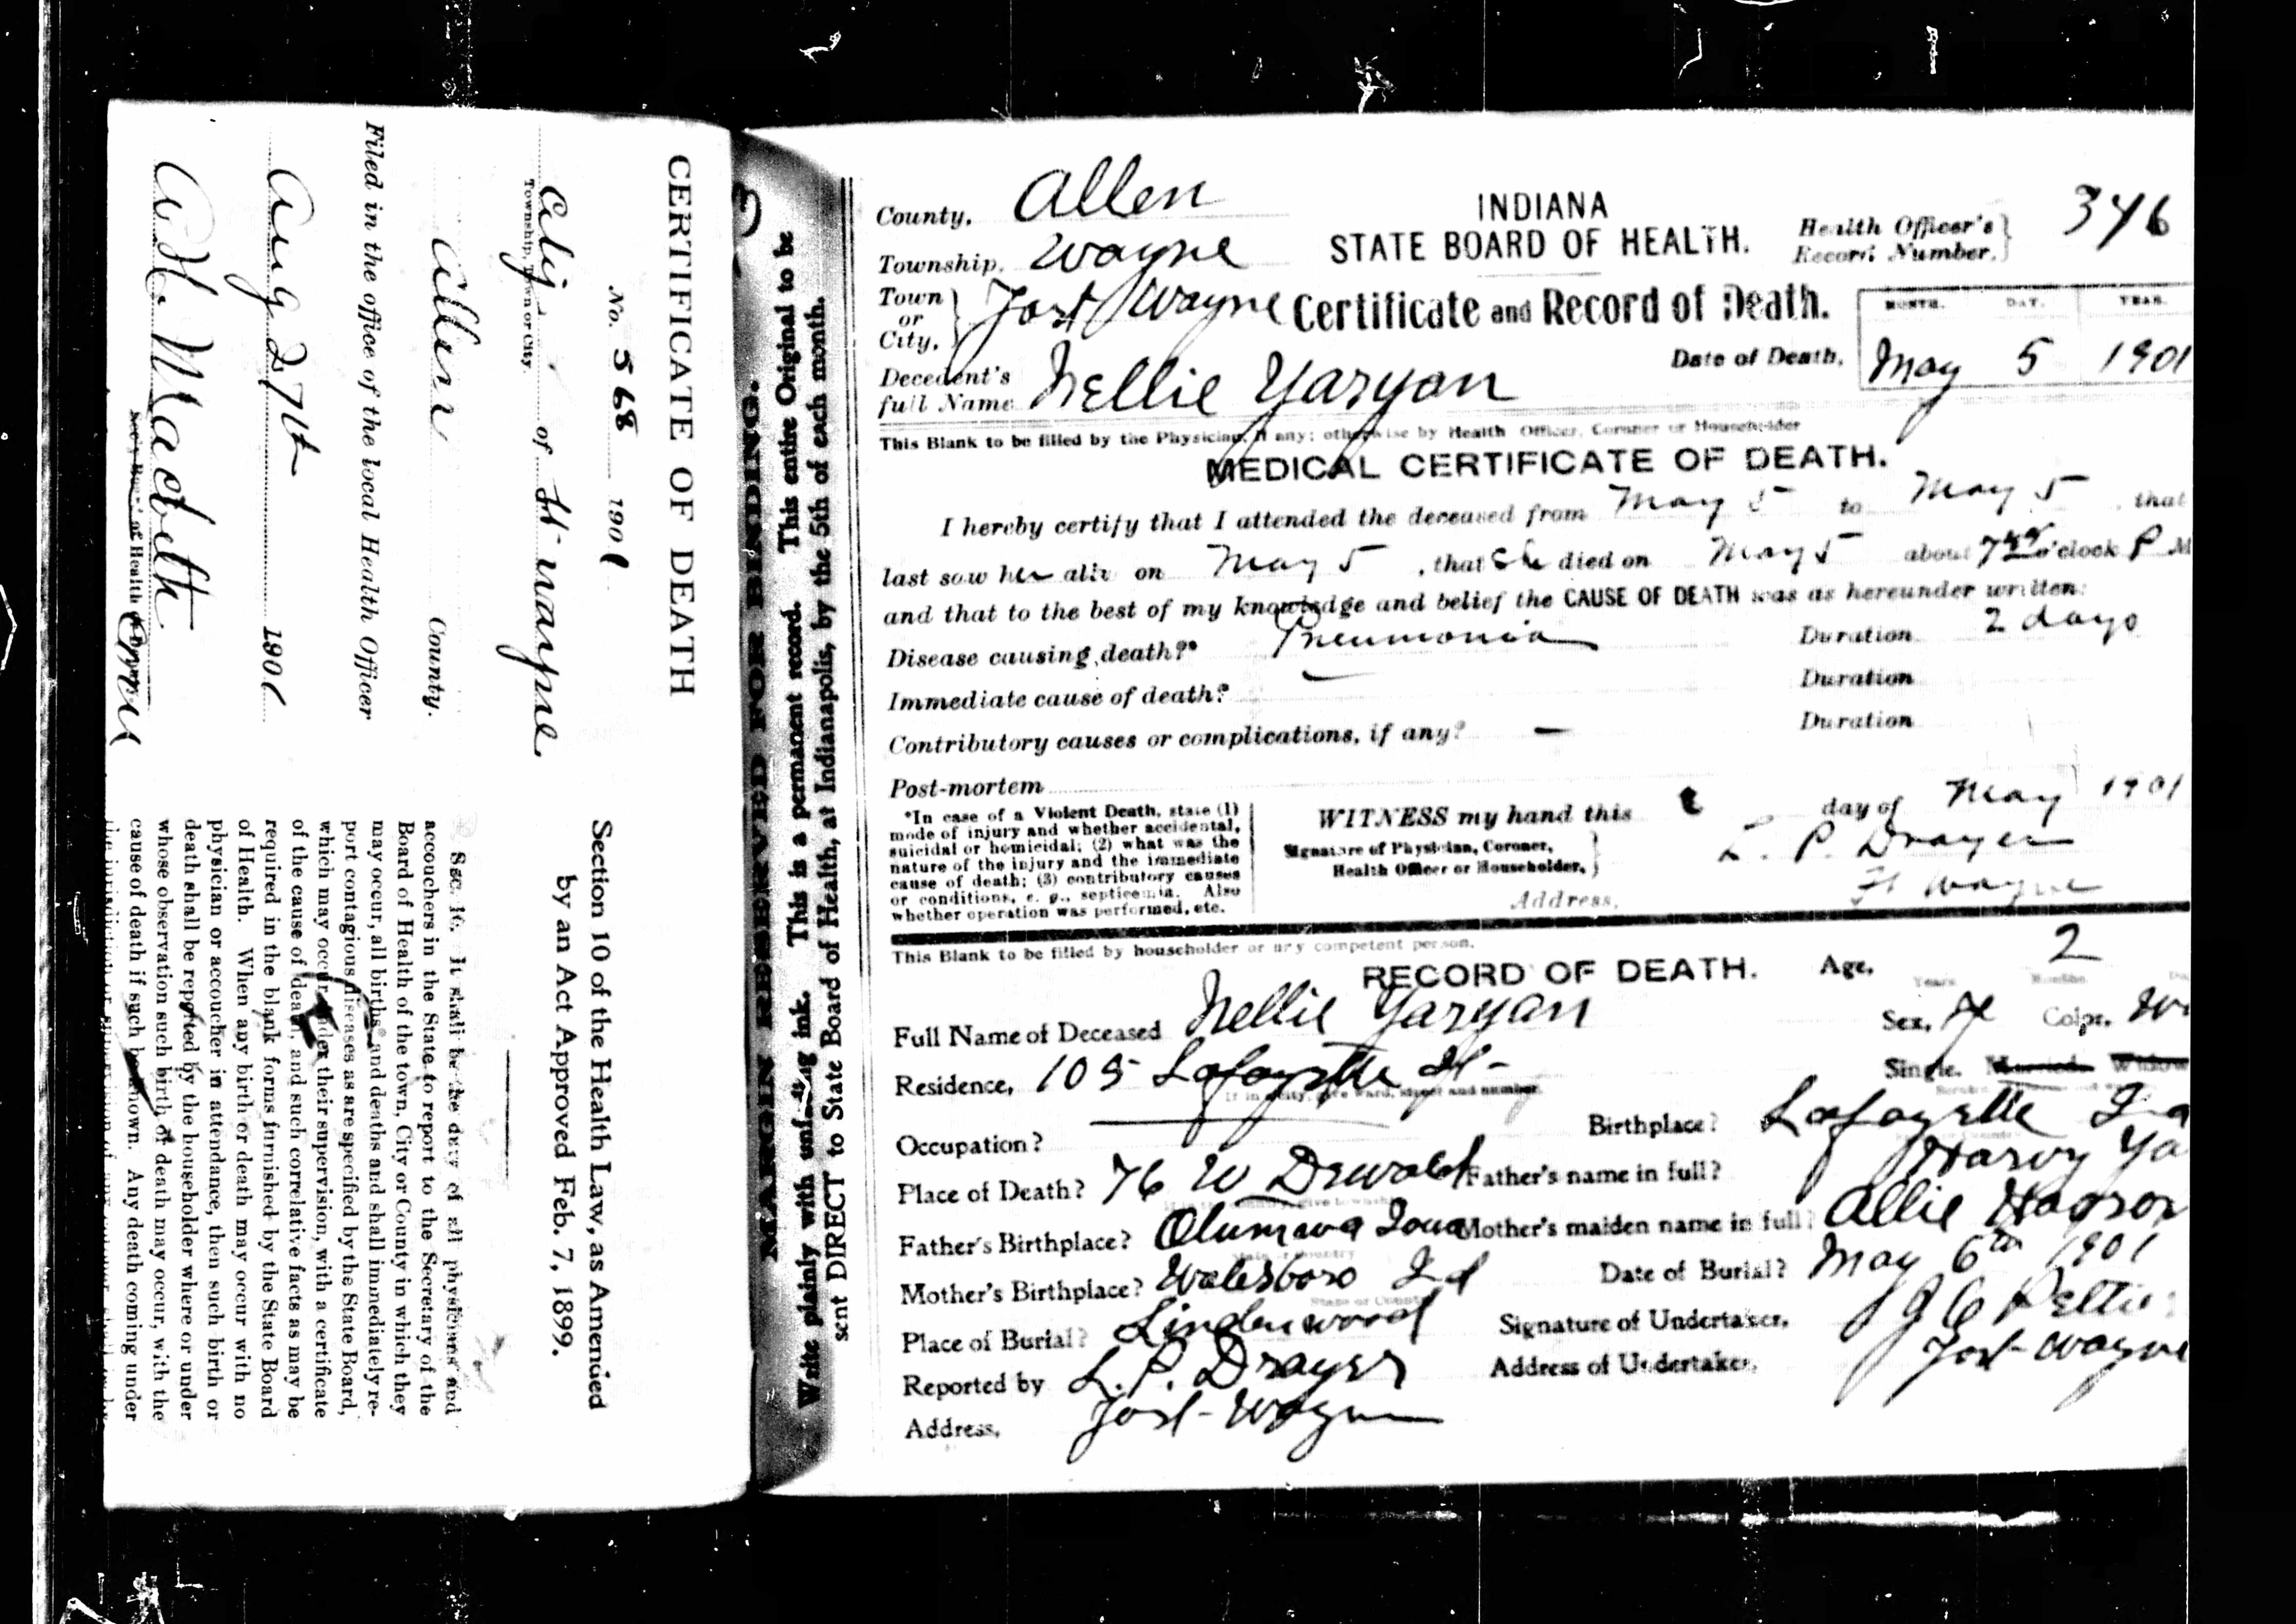 CERTIFICATE OF DEATH
No. 568 1901
City of Ft Wayne.
Township, Town or City.
Allen County.
Filed in the office of the local Health Officer
Aug 27th 1901
A. H. Macbeth
Section 10 of the Health Law, as Amended
by an Act Approved Feb. 7, 1899.
Sec. 10. It shall be the duty of all physicians and
accouchers in the State to report to the Secretary of the
Board of Health of the town, City or County in which they
may occur, all births and deaths and shall immediately re-
port contagious diseases as are specified by the State Board,
which may occur under their supervision, with a certificate
of the cause of death, and such correlative facts as may be
required in the blank forms furnished by the State Board
of Health. When any birth or death may occur with no
physician or accoucher in attendance, then such birth or
death shall be reported by the householder where or under
whose observation such birth or death may occur, with the
cause of death if such be known. Any death coming under
MARGIN RESERVED FOR BINDING.
Write plainly with unfading ink. This is a permanent record. This entire Original to be
sent DIRECT to State Board of Health, at Indianapolis, by the 5th of each month.
County, Allen
INDIANA
STATE BOARD OF HEALTH.
Health Officer's Record Number, 346
Township, Wayne
Town or City, Fort Wayne
Certificate and Record of Death.
MONTH. DAY. YEAR.
Date of Death, May 5 1901
Decedent's full Name Nellie Yaryan
This Blank to be filled by the Physician, if any; otherwise by Health Officer, Coroner or Householder
MEDICAL CERTIFICATE OF DEATH.
I hereby certify that I attended the deceased from May 5 to May 5, that
last saw her alive on May 5, that she died on May 5 about 7 45 o'clock P M
and that to the best of my knowledge and belief the CAUSE OF DEATH was as hereunder written:
Disease causing death?* Pneumonia Duration 2 days
Immediate cause of death? — Duration
Contributory causes or complications, if any? — Duration
Post-mortem
*In case of a Violent Death, state (1)
mode of injury and whether accidental,
suicidal or homicidal; (2) what was the
nature of the injury and the immediate
cause of death; (3) contributory causes
or conditions, e. g., septicemia. Also
whether operation was performed, etc.
WITNESS my hand this day of May 1901
Signature of Physician, Coroner,
Health Officer or Householder, L. P. Drayer
Address, Ft Wayne
This Blank to be filled by householder or any competent person.
RECORD OF DEATH.
Age, 2
Years Months
Full Name of Deceased Nellie Yaryan
Sex, F Color, W
Residence, 105 Lafayette St-
If in city, give ward, street and number.
Single. Married. Widow
Occupation?
Birthplace? Lafayette Ind
Place of Death? 76 W Dewald
Father's name in full? Harvy Ya
Father's Birthplace? Olumwa Iowa
Mother's maiden name in full? Allie
State or Country
Mother's Birthplace? Walesboro Ind
Date of Burial? May 6th 1901
State or Country
Place of Burial? Lindenwood
Signature of Undertaker, J C Peltie
Reported by L. P. Drayer
Address of Undertaker, Fort-Wayne
Address, Fort-Wayne